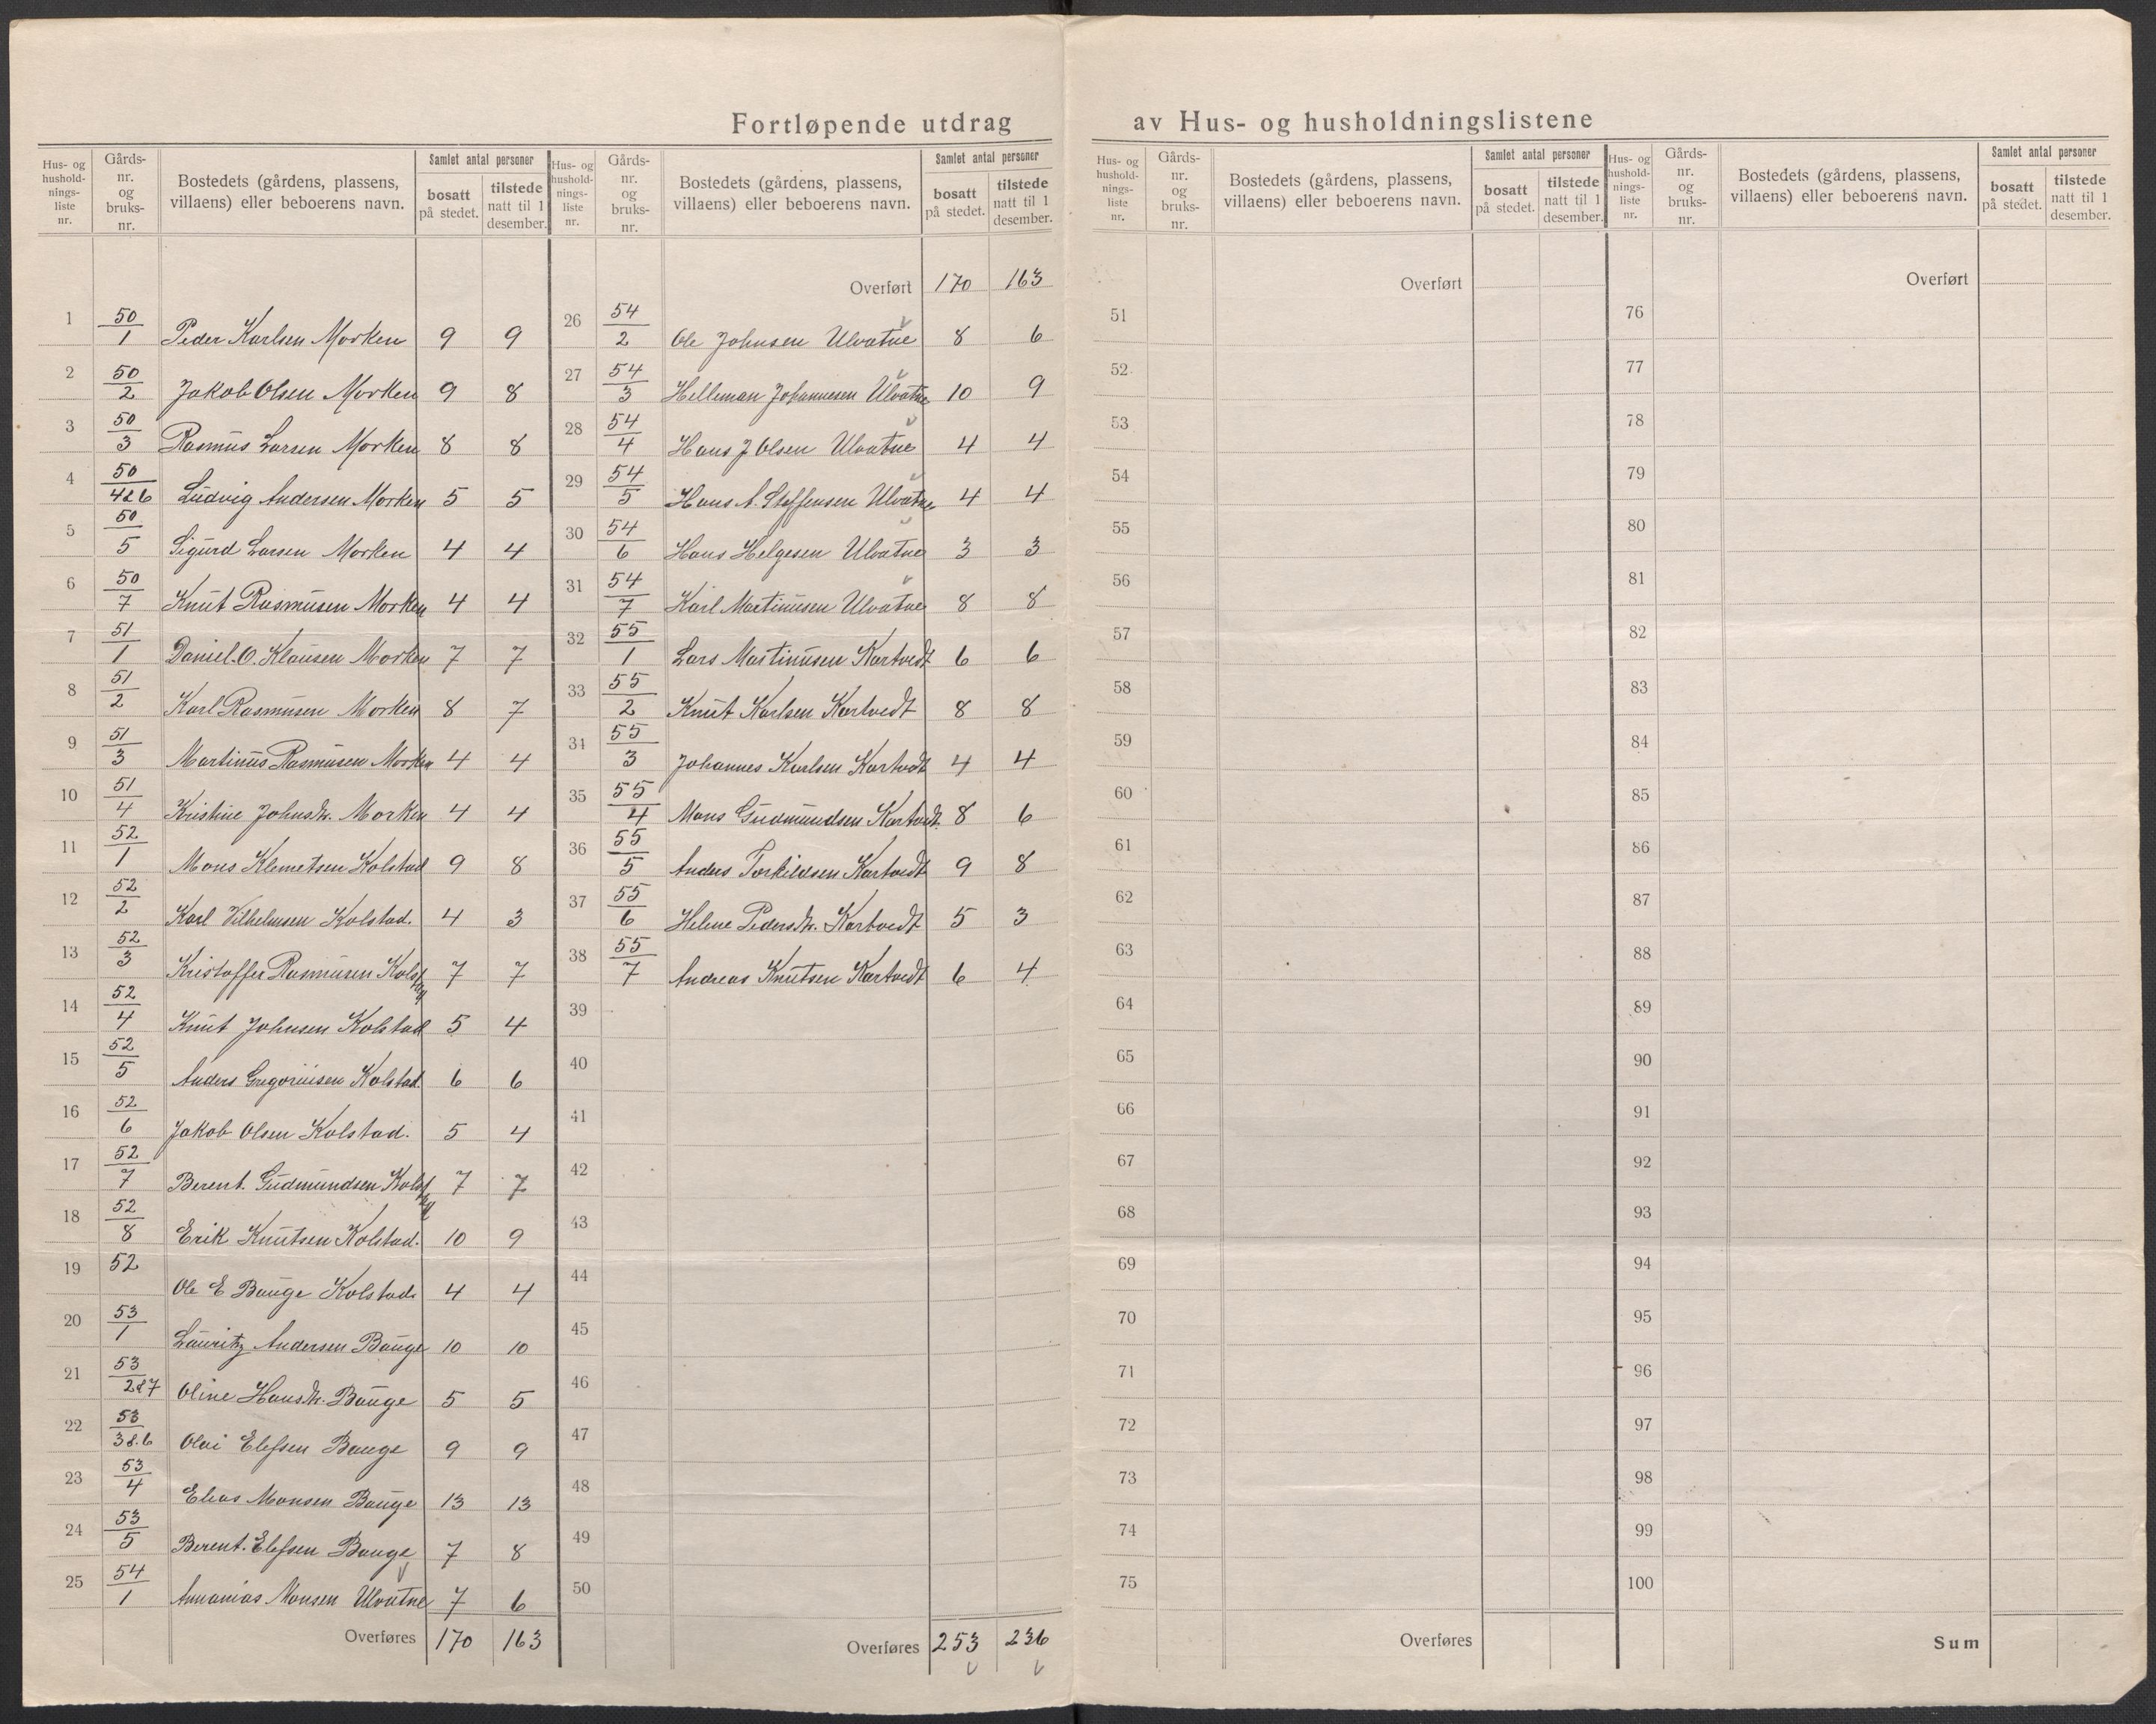 Fortløpende utdrag av Hus- og husholdningslistene
Hus- og husholdnings- liste nr. | Gårds- nr. og bruks- nr. | Bostedets (gårdens, plassens, villaens) eller beboerens navn. | Samlet antal personer | bosatt på stedet. | tilstede natt til 1 desember.
1 50/1 Peder Karlsen Morken 9 9
2 50/2 Jakob Olsen Morken 9 8
3 50/3 Rasmus Larsen Morken 8 8
4 50/4&6 Ludvig Andersen Morken 5 5
5 50/5 Sigurd Larsen Morken 4 4
6 50/7 Knut Rasmusen Morken 4 4
7 51/1 Daniel O. Klausen Morken 7 7
8 51/2 Karl Rasmusen Morken 8 7
9 51/3 Martinus Rasmusen Morken 4 4
10 51/4 Kristine Johnsdtr. Morken 4 4
11 52/1 Mons Klemetsen Kolstad 9 8
12 52/2 Karl Vilhelmsen Kolstad. 4 3
13 52/3 Kristoffer Rasmusen Kolstad 7 7
14 52/4 Knut Johnsen Kolstad 5 4
15 52/5 Anders Gregoriusen Kolstad. 6 6
16 52/6 Jakob Olsen Kolstad. 5 4
17 52/7 Berent. Gudmundsen Kolstad 7 7
18 52/8 Erik Knutsen Kolstad. 10 9
19 52 Ole E Bauge Kolstad. 4 4
20 53/1 Lauritz Andersen Bauge 10 10
21 53/2&7 Oline Hansdtr. Bauge 5 5
22 53/3&6 Olai Elefsen Bauge 9 9
23 53/4 Elias Monsen Bauge 13 13
24 53/5 Berent. Elefsen Bauge 7 8
25 54/1 Annanias Monsen Ulvatne 7 6
Overføres 170 163
Hus- og husholdnings- liste nr. | Gårds- nr. og bruks- nr. | Bostedets (gårdens, plassens, villaens) eller beboerens navn. | Samlet antal personer | bosatt på stedet. | tilstede natt til 1 desember.
Overført 170 163
26 54/2 Ole Johnsen Ulvatne 8 6
27 54/3 Helleman Johannesen Ulvatne 10 9
28 54/4 Hans J Olsen Ulvatne 4 4
29 54/5 Hans A. Steffensen Ulvatne 4 4
30 54/6 Hans Helgesen Ulvatne 3 3
31 54/7 Karl Martinusen Ulvatne 8 8
32 55/1 Lars Martinusen Kartvedt 6 6
33 55/2 Knut Karlsen Kartvedt 8 8
34 55/3 Johannes Karlsen Kartvedt 4 4
35 55/4 Mons Gudmundsen Kartvedt. 8 6
36 55/5 Anders Torkildsen Kartvedt 9 8
37 55/6 Helene Pedersdtr. Kartvedt 5 3
38 55/7 Andreas Knutsen Kartvedt 6 4
39
40
41
42
43
44
45
46
47
48
49
50
Overføres 253 236
Hus- og husholdnings- liste nr. | Gårds- nr. og bruks- nr. | Bostedets (gårdens, plassens, villaens) eller beboerens navn. | Samlet antal personer | bosatt på stedet. | tilstede natt til 1 desember.
Overført
51
52
53
54
55
56
57
58
59
60
61
62
63
64
65
66
67
68
69
70
71
72
73
74
75
Overføres
Hus- og husholdnings- liste nr. | Gårds- nr. og bruks- nr. | Bostedets (gårdens, plassens, villaens) eller beboerens navn. | Samlet antal personer | bosatt på stedet. | tilstede natt til 1 desember.
Overført
76
77
78
79
80
81
82
83
84
85
86
87
88
89
90
91
92
93
94
95
96
97
98
99
100
Sum